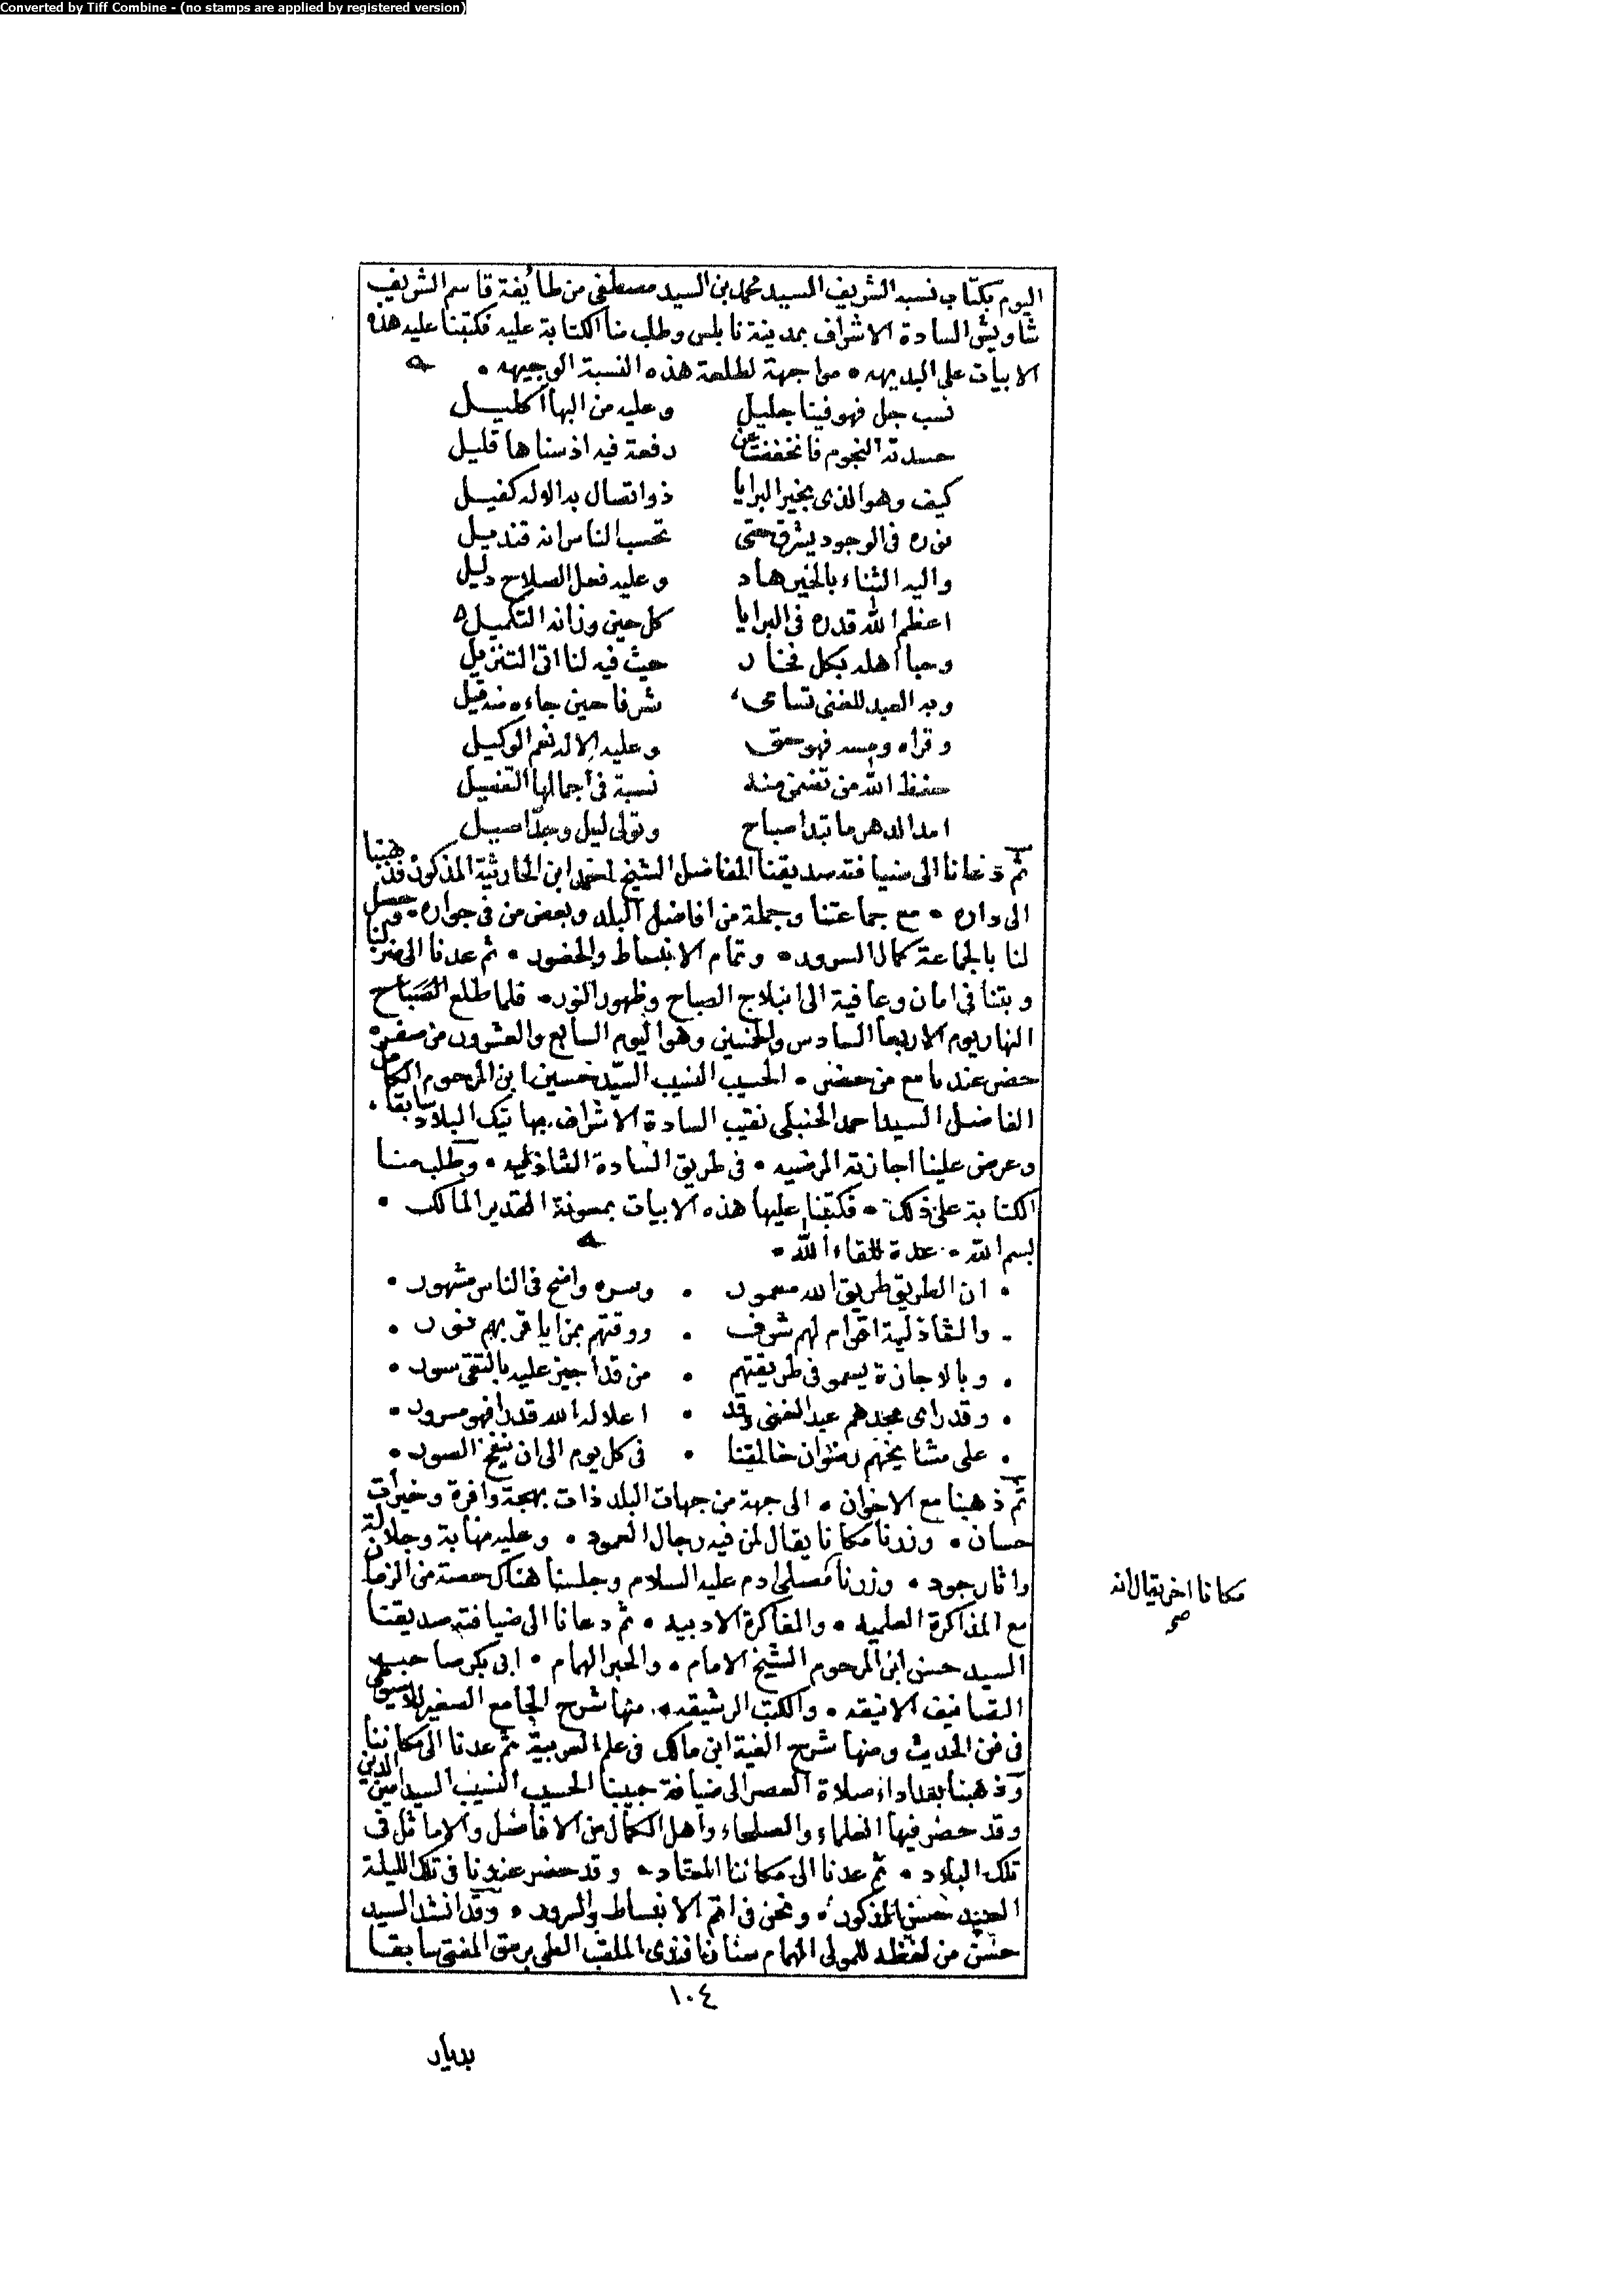 Converted by Tiff Combine - (no stamps are applied by registered version)
اليوم بكتاب نسبه الشريف السيد محمد بن السيد مصطفى من طائفة قاسم الشريف
شاويش السادة الاشراف بمدينة نابلس وطلب منا الكتابة عليه فكتبنا عليه هذه
الابيات على البديهه • مواجهة لطلعة هذه النسبة الوجيهه •
نسب جل فهو فينا جليل وعليه من البهاا كليل
حسدته النجوم فانخفضت عن رفعة فيه اذ سناها قليل
كيف وهو الذى بخير البرايا ذو اتصال به الوله كفيل
نوره فى الوجود يشرق حتى تحسب الناس انه قنديل
واليه الثناء بالخير هاد وعليه فعل الصلاح دليل
اعظم الله قدره فى البرايا كل حين وزانه التكميل
وحبا اهله بكل فخار حيث فيه لنا اتى التنزيل
وبه العبد للغنى تسامى شرفا حين جاءه منه قيل
وقراه ومسه فهو حق وعليه الاله نعم الوكيل
حفظ الله من تضمن منه نسبة فى اجمالها التفصيل
امد الدهر ما تبدا صباح وتولى ليل وجدا صيل
ثم دعانا الى ضيافته صديقنا الفاضل الشيخ احمد ابن الحارثية المذكور فذهبنا
الى داره • مع جماعتنا وجملة من افاضل البلد وبعض من فى جواره • فحصل
لنا بالجماعة كمال السرور • وتمام الانبساط والحضور • ثم عدنا الى منزلنا
وبتنا فى امان وعافية الى انبلاج الصباح وظهور النور • فلما طلع الصباح
النهار يوم الاربعا السادس والخمسين وهو اليوم السابع والعشرون من صفر
حضر عندنا مع من حضر • الحسيب النسيب السيد حسين ابن المرحوم الكامل
الفاضل السيد احمد الحنبلى نقيب السادة الاشراف بهاتيك البلاد سابقا •
وعرض علينا اجازته المرضيه • فى طريق السادة الشاذليه • وطلب منا
الكتابة على ذلك • فكتبنا عليها هذه الابيات بمعونة القدير المالك •
بسم الله • عدة للقاء الله •
• ان الطريق طريق الله معمور • وسره واضح فى الناس مشهور •
• والشاذلية اقوام لهم شرف • ووقتهم بمزايا قربهم نور •
• وبالاجازة يسمو فى طريقتهم • من قد اجيز عليه بالتقى سور •
• وقد راى مجدهم عبد الغنى وقد • اعلا له الله قدرا فهو مسرور •
• على مشايخهم رضوان خالقنا • فى كل يوم الى ان ينفخ الصور •
ثم ذهبنا مع الاخوان • الى جهة من جهات البلد ذات بهجة وافرة وخيرات
حسان • وزرنا مكانا يقال لمن فيه رجال العمود • وعليه مهابة وجلالة
واثار جود • وزرنا مصلى ادم عليه السلام وجلسنا هناك حصة من الزمان
مكانا اخر يقال انه
صح
مع المذاكرة العلميه • والمفاكرة الادبيه • ثم دعانا الى ضيافته صديقنا
السيد حسن ابن المرحوم الشيخ الامام • والحبر الهمام • ابى بكر صاحب
التصانيف الانيقه • والكتب الرشيقه • منها شرح الجامع الصغير للاسيوطى
فى فن الحديث ومنها شرح الفية ابن مالك فى علم العربية ثم عدنا الى مكاننا
وذهبنا بعد اداء صلاة العصر الى ضيافة حبيبنا الحسيب النسيب السيد امين الدين
وقد حضر فيها العلماء والصلحاء واهل الكمال من الافاضل والاماثل فى
تلك البلاد • ثم عدنا الى مكاننا المعتاد • وقد حضر عندنا فى تلك الليلة
السيد حسن المذكور • ونحن فى اتم الانبساط والسرور • وقد انشد السيد
حسن من لفظه للمولى الهمام سنان افندى الملقب العلى برمق المفتى سابقا
١٠٤
بديار